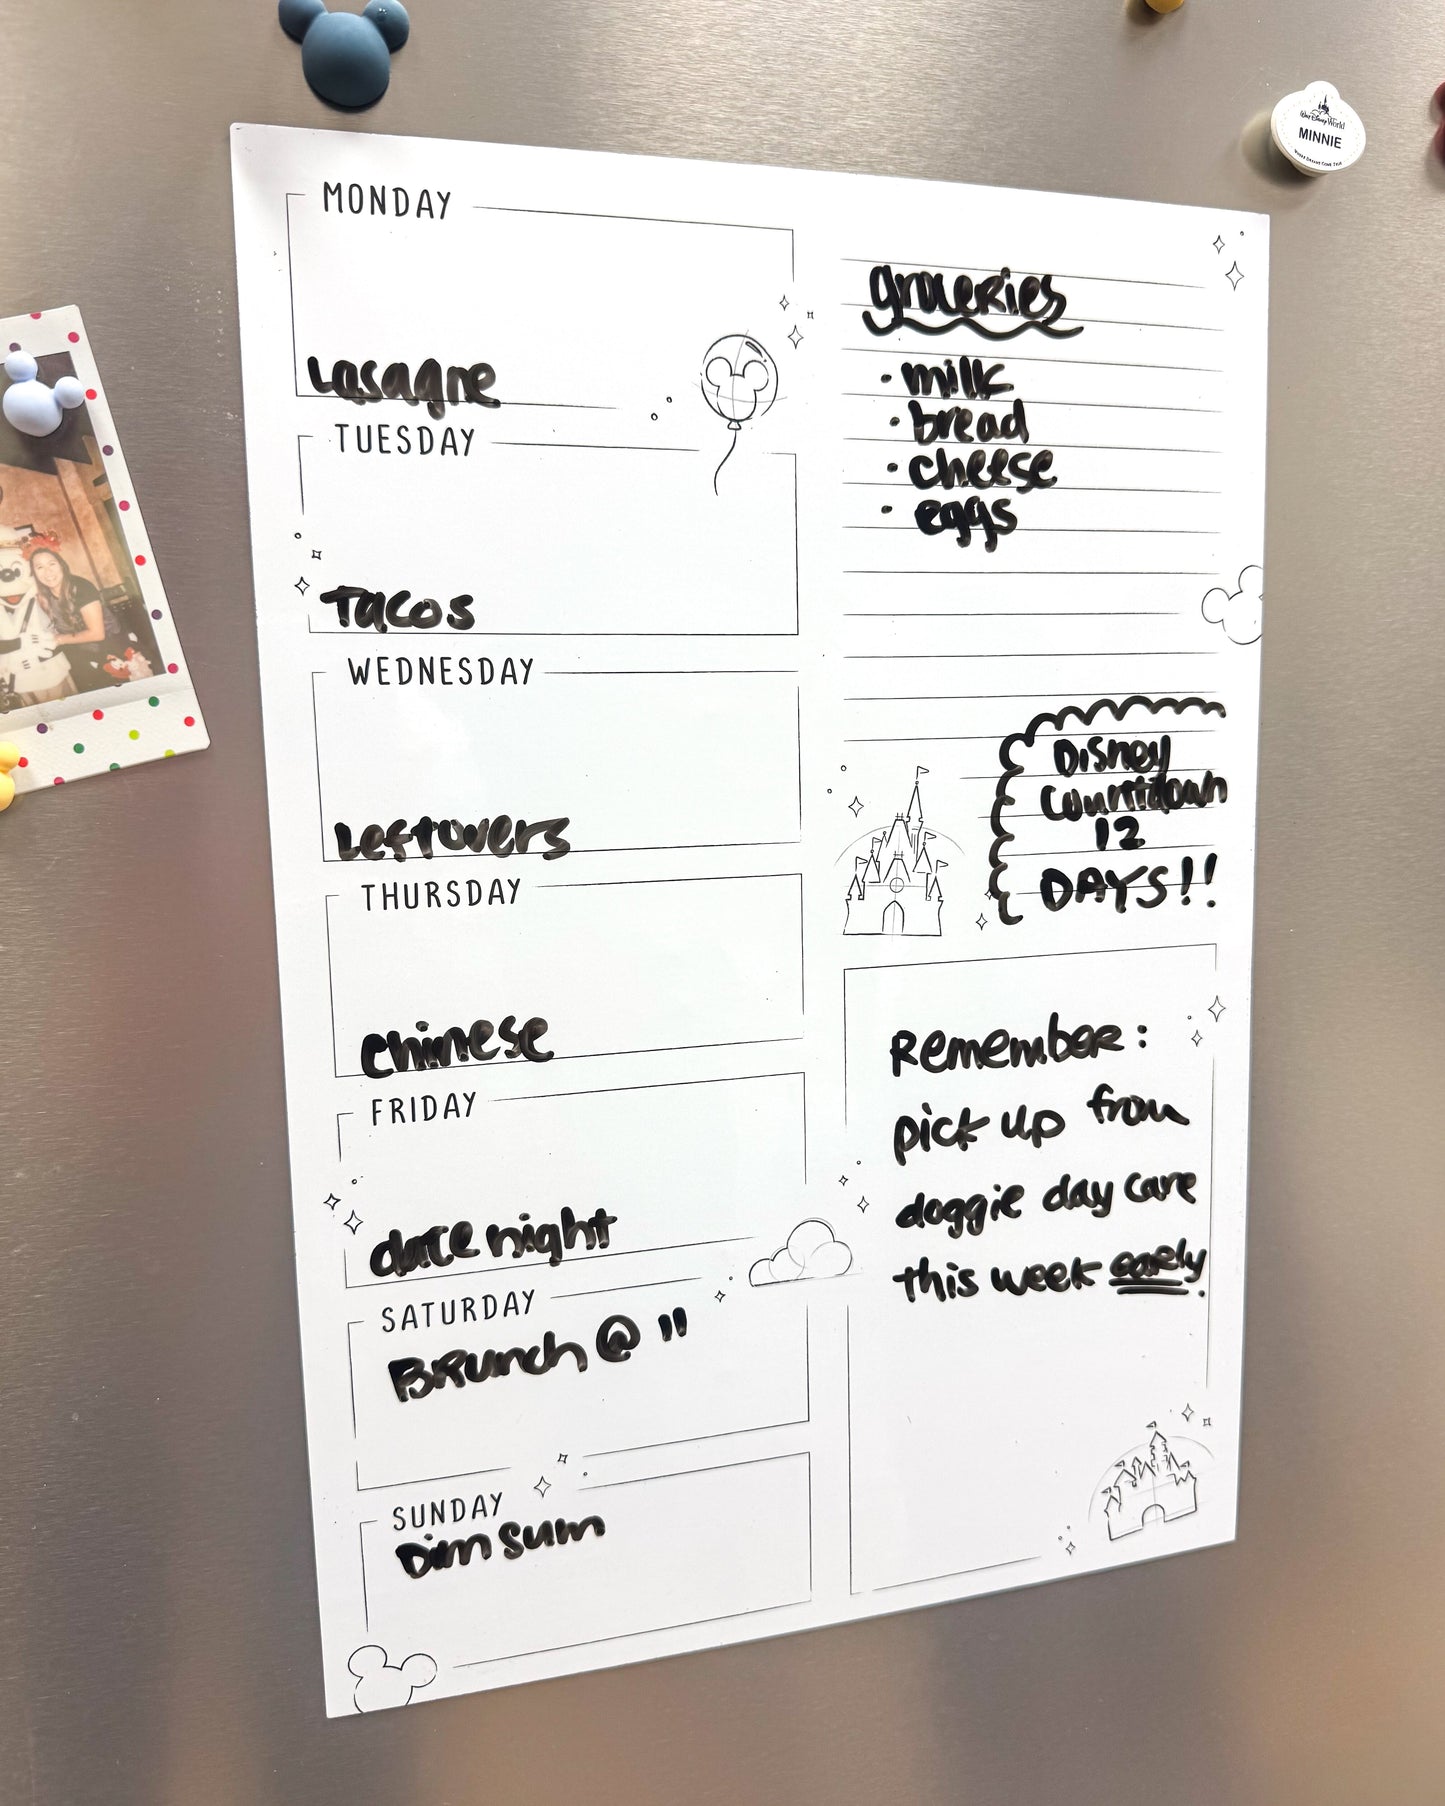 MONDAY
Lasagne
TUESDAY
Tacos
WEDNESDAY
Leftovers
THURSDAY
Chinese
FRIDAY
date night
SATURDAY
Brunch @ 11
SUNDAY
Dim sum
groceries
• milk
• bread
• cheese
• eggs
Disney
Countdown
12
DAYS!!
Remember:
pick up from
doggie day care
this week early.
Walt Disney World
MINNIE